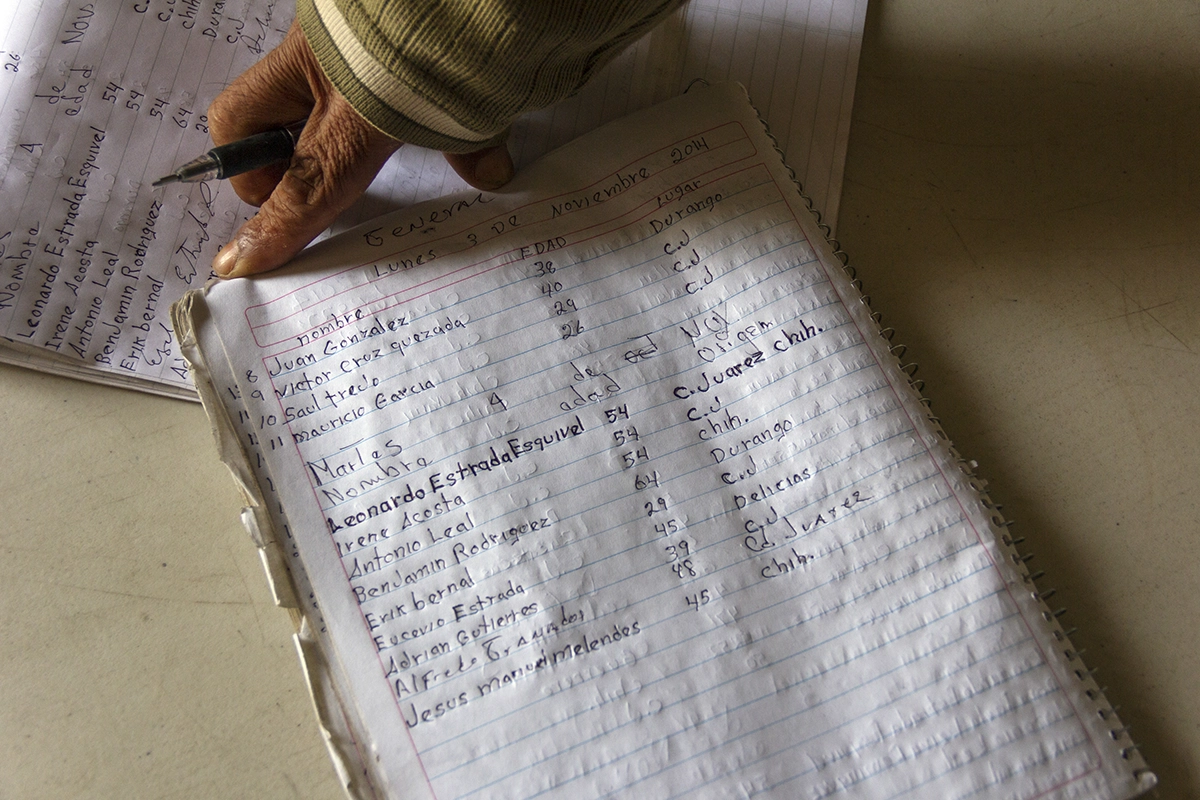 26
4 de NOV
Nombre edad
Leonardo Estrada Esquivel 54
Irene Acosta 54 C.J
Antonio Leal 54 chih
Benjamin Rodriguez 64 Dura
Erik bernal 20 C.J
General
Lunes 3 De Noviembre 2014
nombre EDAD Lugar
8 Juan Gonzalez 38 Durango
9 Victor Cruz quezada 40 C.J
10 Saul tredo 29 C.J
11 mauricio Garcia 26 C.J
Martes 4 de NOV
Nombre adad Origem
Leonardo Estrada Esquivel 54 C.Juarez chih.
Irene Acosta 54 C.J
Antonio Leal 54 chih.
Benjamin Rodriguez 64 Durango
Erik bernal 29 C.J
Eucevio Estrada 45 Delicias
Adrian Gutierres 39 C.J
Alfredo Granados 48 Cd. Juarez
Jesus manuel Melendes 45 chih.